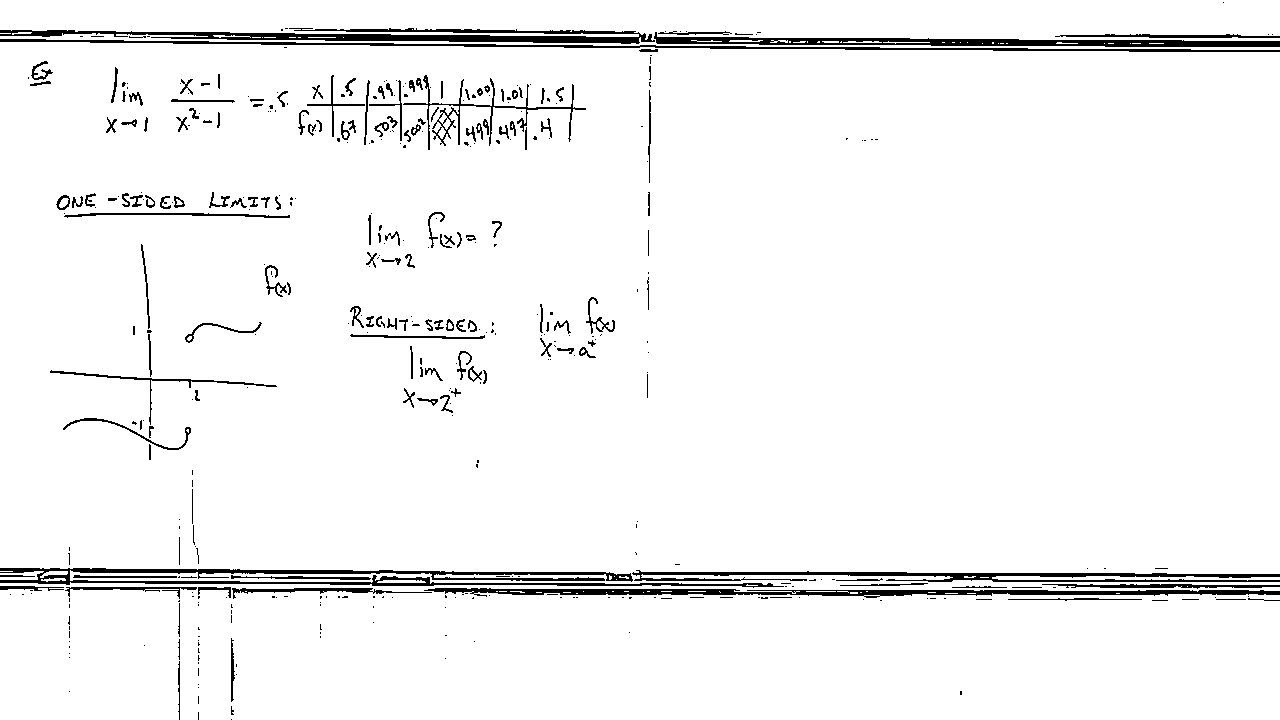 Ex lim x→1 x-1 / x²-1 = .5
x .5 .99 .999 1 1.001 1.01 1.5
f(x) .67 .503 .5002 .499 .497 .4
ONE-SIDED LIMITS:
lim x→2 f(x) = ?
f(x)
1
2
-1
RIGHT-SIDED: lim x→a⁺ f(x)
lim x→2⁺ f(x)